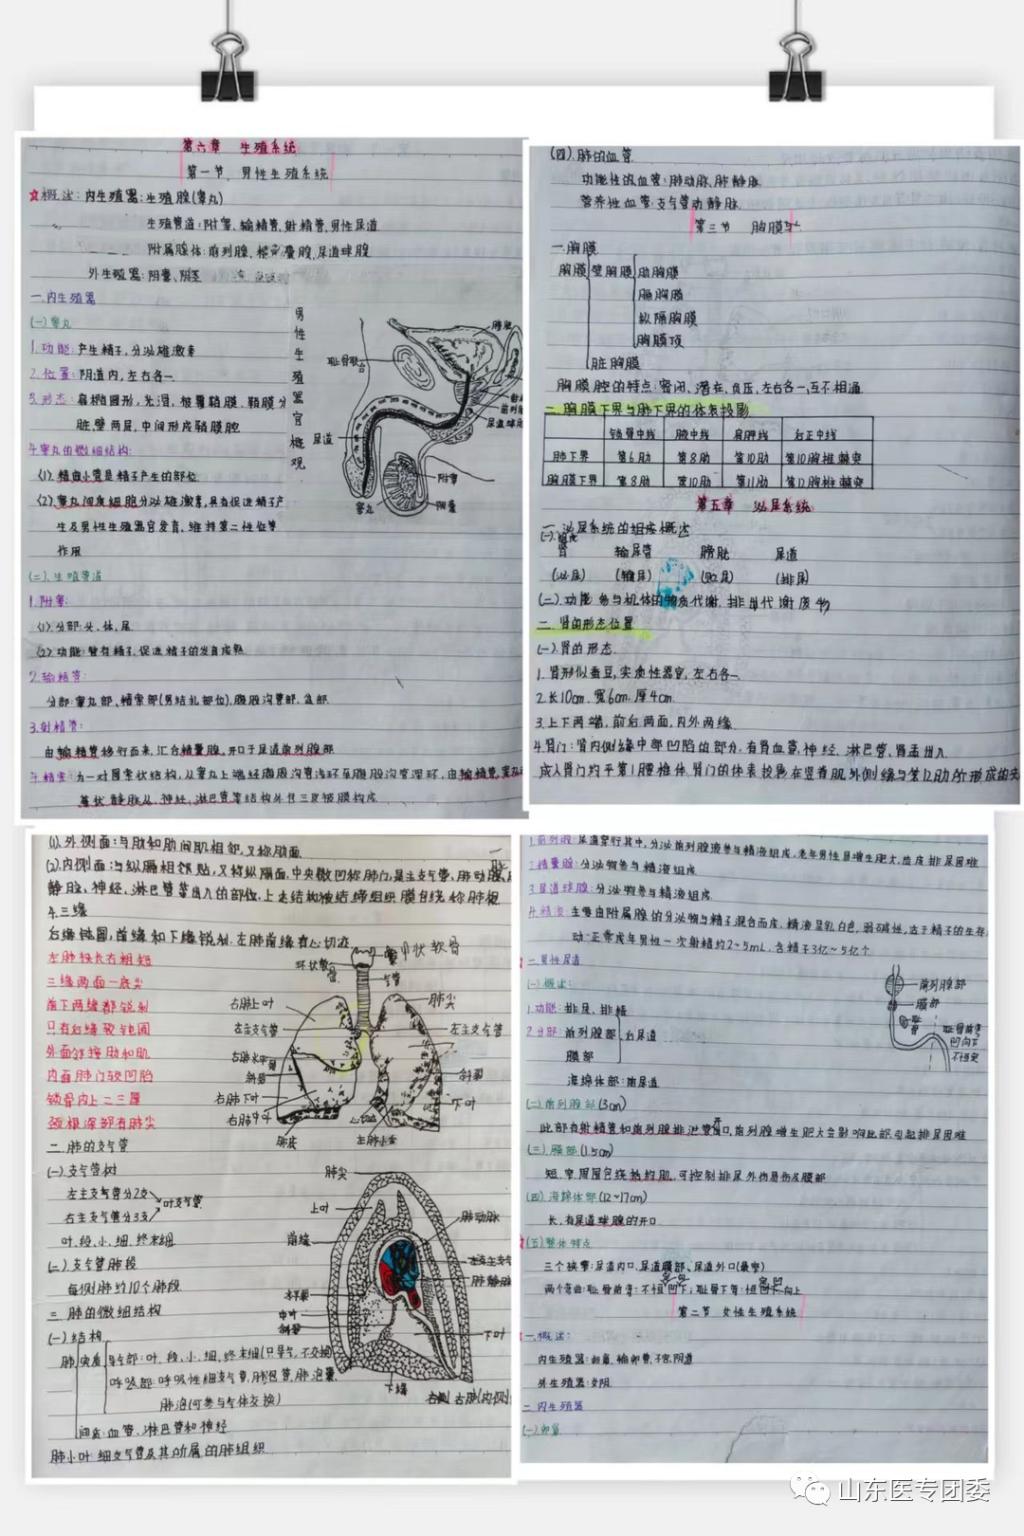 第六章 生殖系统
第一节 男性生殖系统
☆概述:内生殖器:生殖腺(睾丸)
生殖管道:附睾、输精管、射精管、男性尿道
附属腺体:前列腺、精囊腺、尿道球腺
外生殖器:阴囊、阴茎
一.内生殖器
(一)睾丸
1.功能:产生精子,分泌雄激素
2.位置:阴道内,左右各一.
3.形态:扁椭圆形,光滑,被覆鞘膜,鞘膜分
脏壁两层,中间形成鞘膜腔
4.睾丸的微细结构:
(1).精曲小管是精子产生的部位
(2).睾丸间质细胞分泌雄激素,具有促进精子产
生及男性生殖器官发育、维持第二性征等
作用
(二).生殖管道
1.附睾:
(1).分部:头、体、尾
(2).功能:暂存精子,促进精子的发育成熟
2.输精管:
分部:睾丸部、精索部(男结扎部位)、腹股沟管部、盆部
3.射精管:
由输精管移行而来,汇合精囊腺,开口于尿道前列腺部
4.精索:为一对圆索状结构,从睾丸上端经腹股沟管浅环至腹股沟管深环,由输精管,睾丸
蔓状静脉丛、神经、淋巴管等结构外包三层被膜构成
男性生殖器官概观
膀胱
耻骨联合
前列腺
尿道球腺
尿道
附睾
睾丸
阴囊
(四).肺的血管
功能性的血管:肺动脉、肺静脉
营养性血管:支气管动静脉
第三节 胸膜
一.胸膜
胸膜 壁胸膜 肋胸膜
膈胸膜
纵隔胸膜
胸膜顶
脏胸膜
胸膜腔的特点:密闭、潜在、负压,左右各一,互不相通
二.胸膜下界与肺下界的体表投影
锁骨中线 腋中线 肩胛线 后正中线
肺下界 第6肋 第8肋 第10肋 第10胸椎棘突
胸膜下界 第8肋 第10肋 第11肋 第12胸椎棘突
第五章 泌尿系统
一.泌尿系统的组成概述
(一).组成
肾 输尿管 膀胱 尿道
(泌尿) (输尿) (贮尿) (排尿)
(二)功能:参与机体的物质代谢,排出代谢废物
二.肾的形态位置
(一).肾的形态
1.肾形似蚕豆,实质性器官,左右各一.
2.长10cm.宽6cm.厚4cm.
3.上下两端,前后两面,内外两缘
4.肾门:肾内侧缘中部凹陷的部分,有肾血管,神经、淋巴管、肾盂出入
成人肾门约平第1腰椎体,肾门的体表投影在竖脊肌外侧缘与第12肋所形成的夹
(1).外侧面:与肋和肋间肌相邻,又称肋面.
(2).内侧面:与纵膈相邻贴,又称纵膈面,中央微凹称肺门,是主支气管,肺动脉,肺
静脉、神经、淋巴管等出入的部位,上述结构被结缔组织膜包绕称肺根
4.三缘
后缘钝圆,前缘和下缘锐利.左肺前缘有心切迹
左肺狭长右粗短
三缘两面一底尖
前下两缘都锐利
只有后缘较钝圆
外面邻接肋和肌
内面肺门较凹陷
锁骨内上二三厘
颈根深部有肺尖
甲状软骨
环状软骨
气管
右肺上叶
肺尖
左主支气管
左主支气管
右肺水平裂
斜裂
斜裂
右肺下叶
下叶
右肺中叶
肺底
心切迹
左肺小舌
二.肺的支气管
(一)支气管树
左主支气管分2支
右主支气管分3支
叶支气管
叶、段、小、细、终末细
(二).支气管肺段
每侧肺约10个肺段
三.肺的微细结构
(一)结构
肺 实质 导气部:叶、段、小、细、终末细(只导气,不交换)
呼吸部:呼吸性细支气管,肺泡管,肺泡囊,
肺泡(可参与气体交换)
间质:血管、淋巴管和神经
肺小叶:细支气管及其所属的肺组织
肺尖
上叶
前缘
肺动脉
右主支气管
肺静脉
水平裂
中叶
斜裂
下叶
下缘
右肺(内侧)
1.前列腺:尿道穿行其中,分泌前列腺液参与精液组成,老年男性易增生肥大,造成排尿困难
2.精囊腺:分泌物参与精液组成.
3.尿道球腺:分泌物参与精液组成.
4.精液:主要由附属腺的分泌物与精子混合而成.精液呈乳白色,弱碱性,适于精子的生存
动.正常成年男性一次射精约2~5mL.含精子3亿~5亿个
二.男性尿道
(一)概述:
1.功能:排尿、排精
2.分部:前列腺部 后尿道
膜部
海绵体部:前尿道
前列腺部
膜部
耻骨
耻骨前弯
凹向下
不恒定
(二)前列腺部(3cm)
此部有射精管和前列腺排泄管开口,前列腺增生肥大会影响此部,引起排尿困难
(三)膜部(1.5cm)
短.穿周围包绕括约肌,可控制排尿.外伤易伤及膜部
(四)海绵体部(12~17cm)
长,有尿道球腺的开口
☆(五)整体特点
三个狭窄:尿道内口、尿道膜部、尿道外口(最窄)
两个弯曲:耻骨前弯:不恒定凹下;耻骨下弯:恒定凹向上
第二节 女性生殖系统
一.概述:
内生殖器:卵巢、输卵管、子宫、阴道
外生殖器:女阴
二.内生殖器
(一)卵巢
山东医专团委